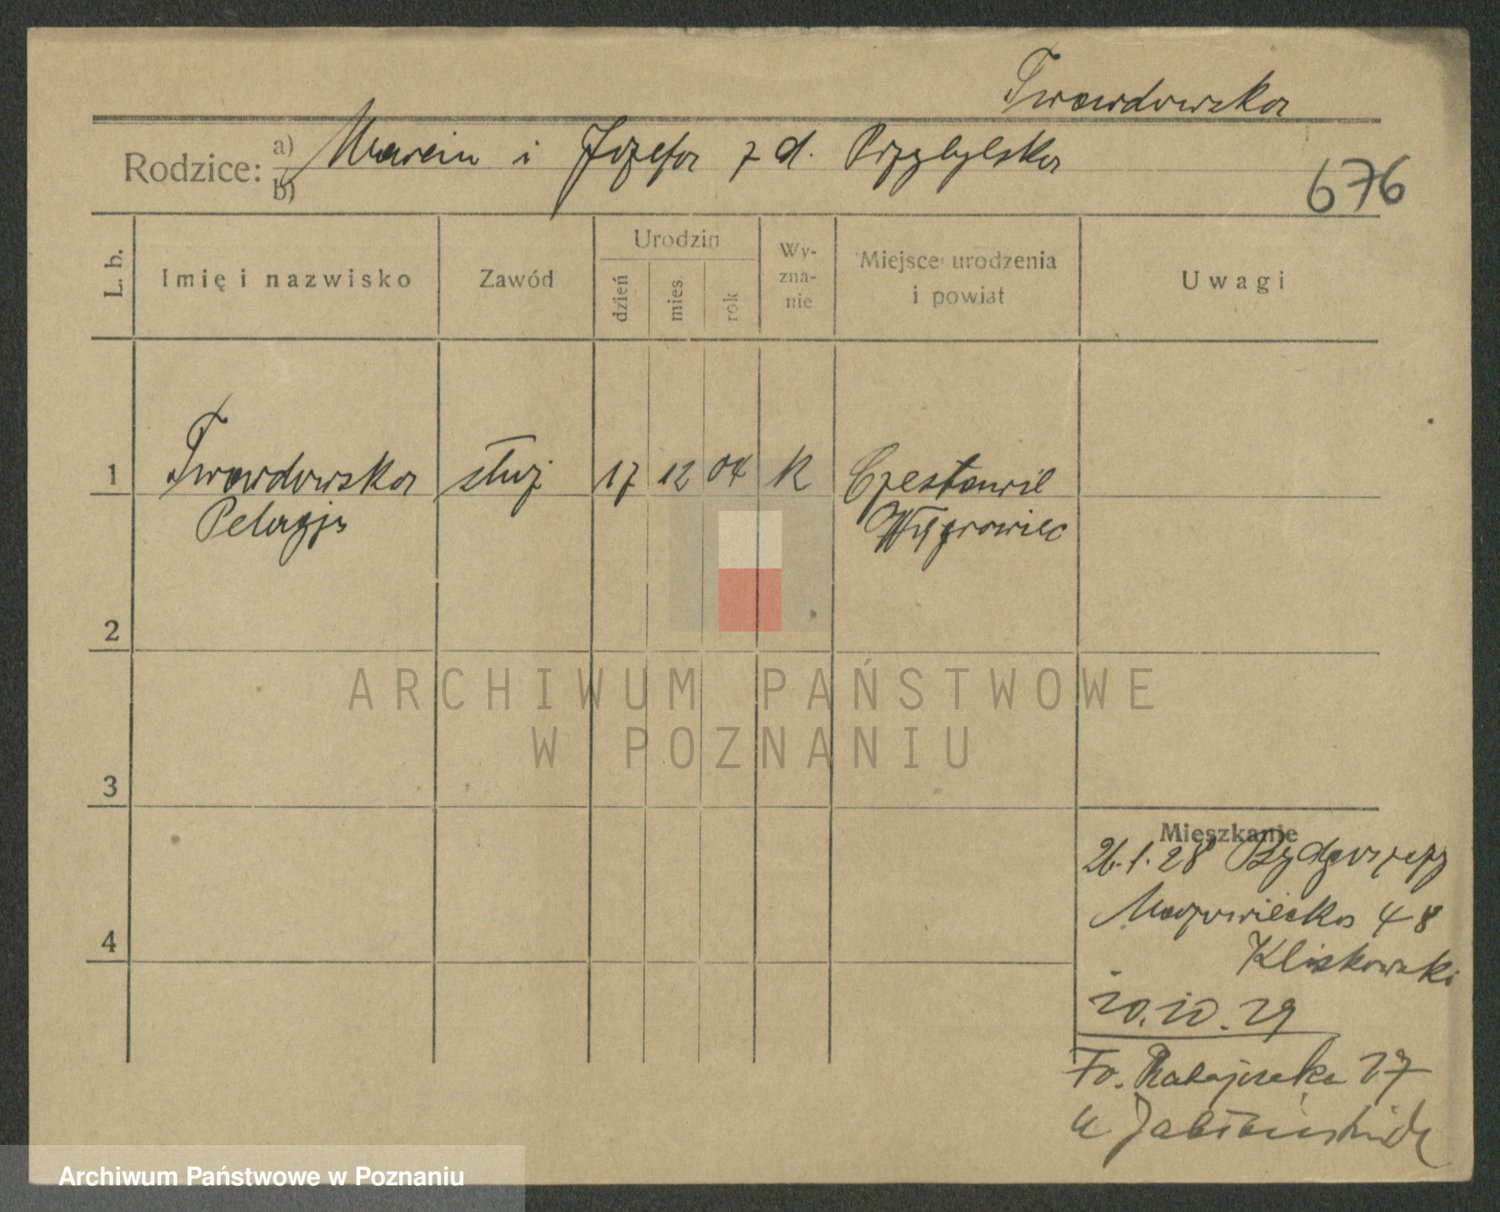 Twardowska
Rodzice: a) Marcin i Józefa z d. Przybylska
b)
676
L. b.
Imię i nazwisko
Zawód
Urodzin
dzień
mies.
rok
Wy-
zna-
nie
Miejsce urodzenia
i powiat
Uwagi
1
Twardowska służ 17 12 04 K Czesławic
Pelagja Wągrowiec
2
3
4
Mieszkanie
26.1.28 Bydgoszczy
Mazowiecka 48
Kliszkowski
20.10.29
Fr. Ratajczaka 27
u
ARCHIWUM PAŃSTWOWE
W POZNANIU
Archiwum Państwowe w Poznaniu